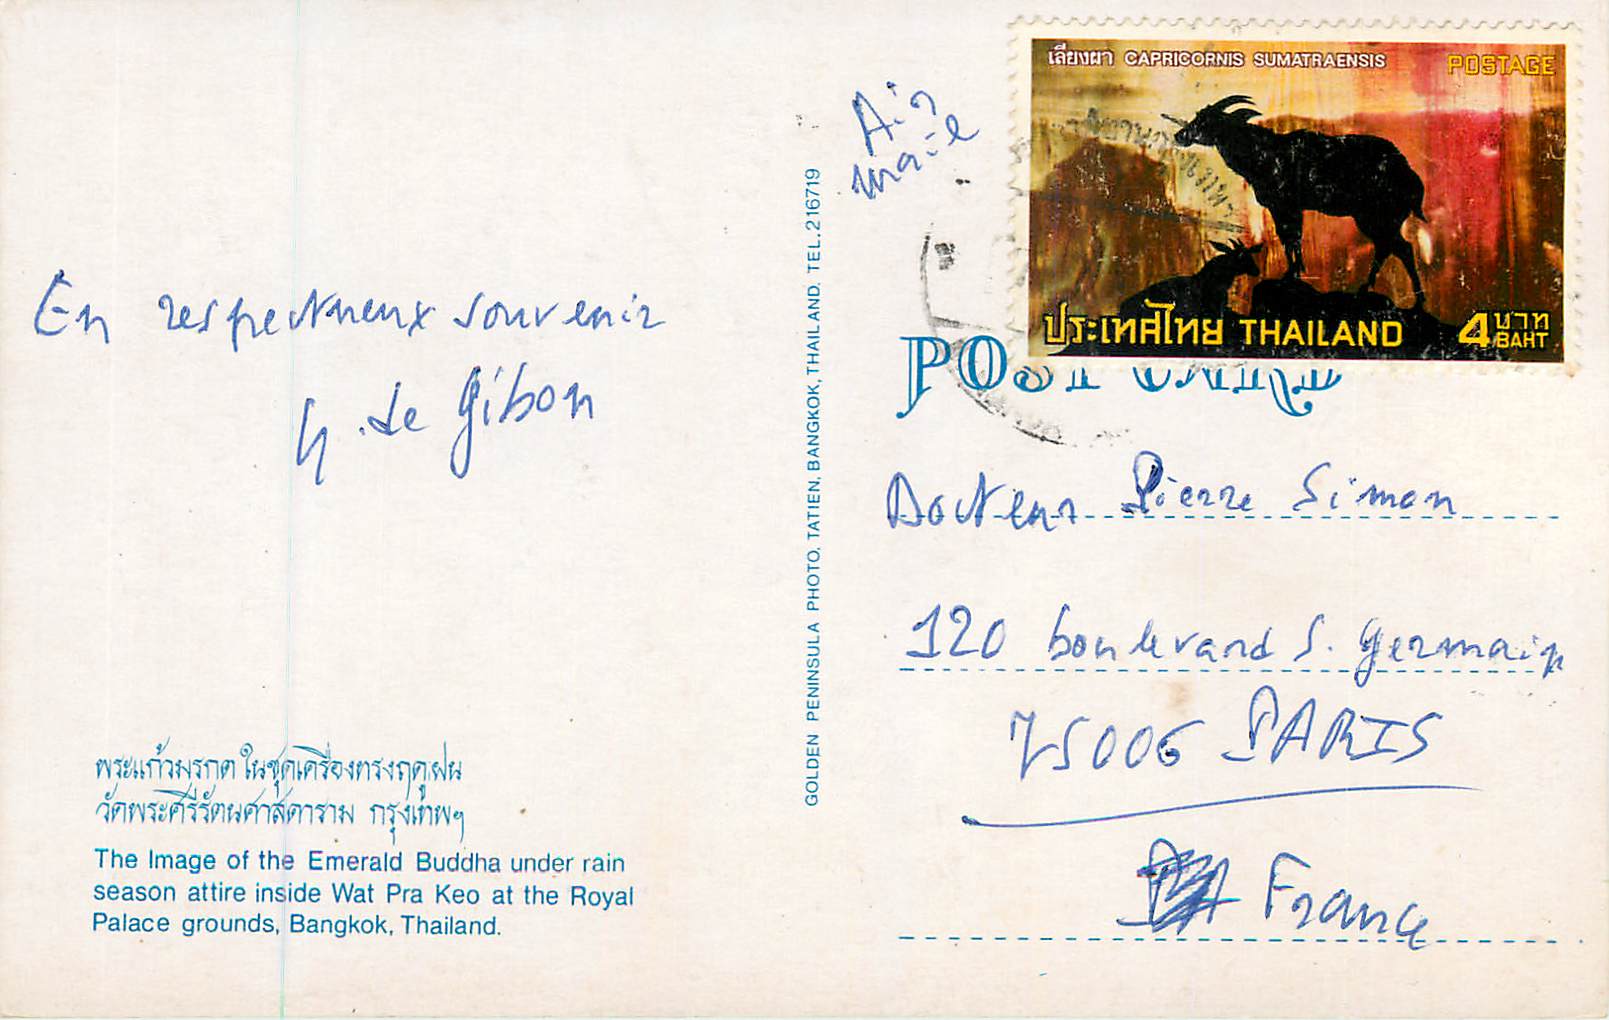 En respectueux souvenir
G. de Gibon
พระแก้วมรกต ในชุดเครื่องทรงฤดูฝน
วัดพระศรีรัตนศาสดาราม กรุงเทพฯ
The Image of the Emerald Buddha under rain
season attire inside Wat Pra Keo at the Royal
Palace grounds, Bangkok, Thailand.
GOLDEN PENINSULA PHOTO, TATIEN, BANGKOK, THAILAND, TEL. 216719
Air
mail
เลียงผา CAPRICORNIS SUMATRAENSIS POSTAGE
ประเทศไทย THAILAND 4 บาท BAHT
POST CARD
Docteur Pierre Simon
120 boulevard S. Germain
75006 PARIS
France